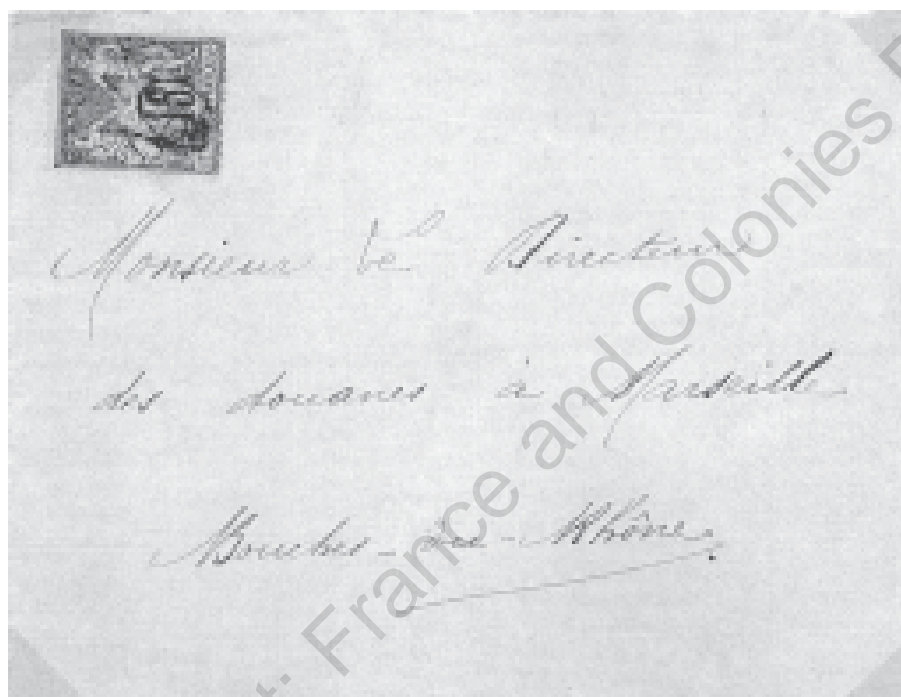 Monsieur le Directeur
des douanes à Marseille
Bouches-du-Rhône
: France and Colonies